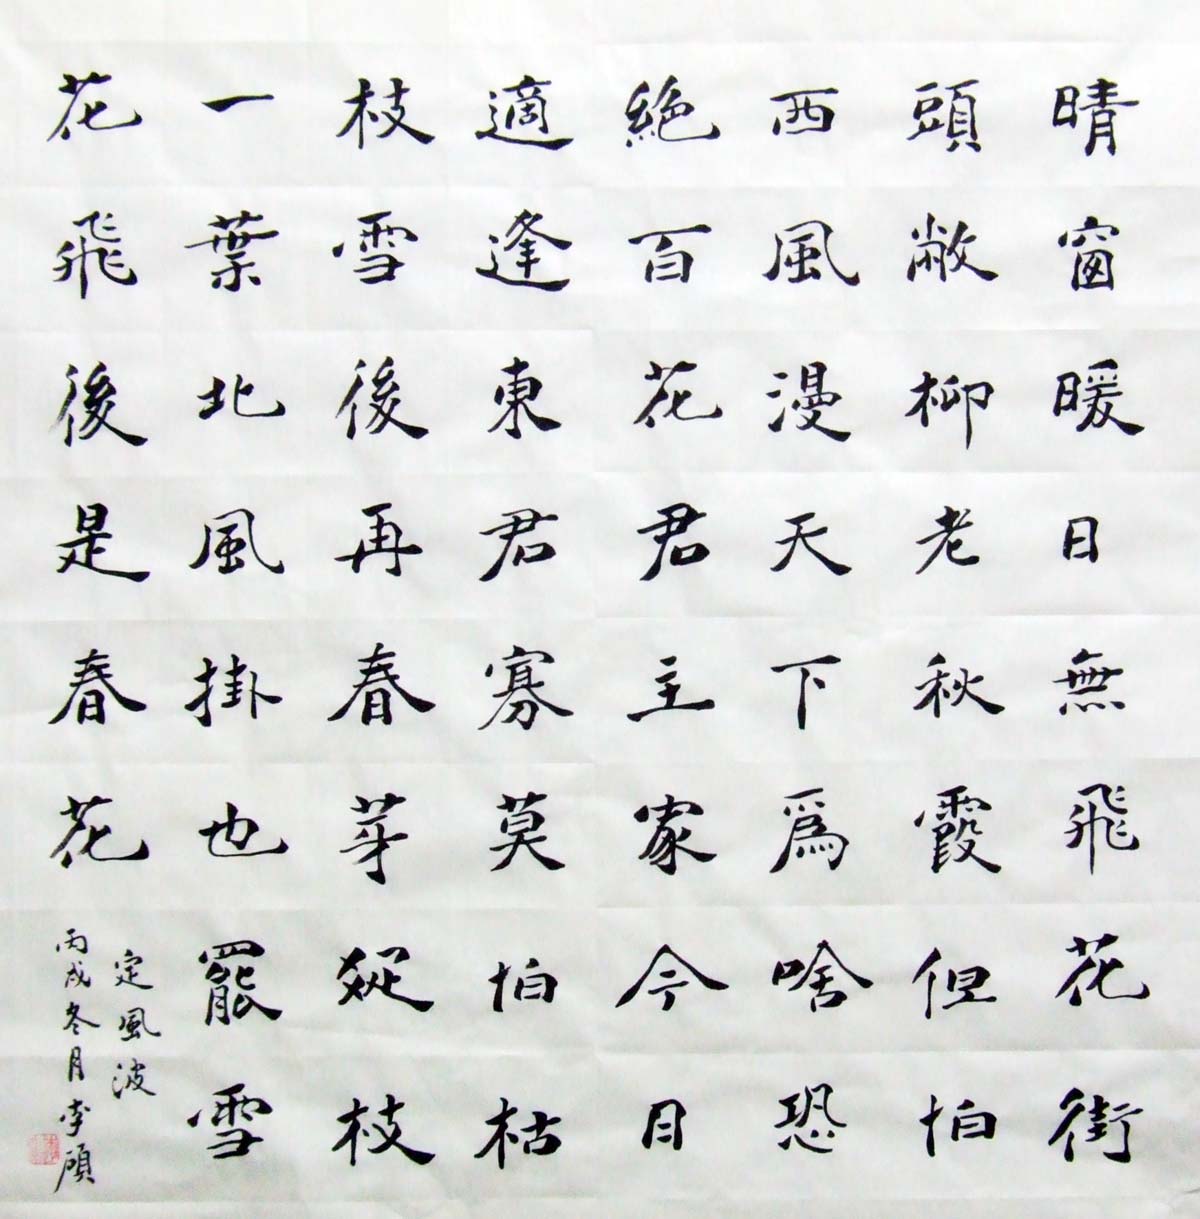 晴窗暖日無飛花街
頭敝柳老秋霞但怕
西風漫天下爲啥恐
絶百花君主家今日
適逢東君寡莫怕枯
枝雪後再春芽縱枝
一葉北風掛也罷雪
花飛後是春花
定風波
丙戌冬月李碩